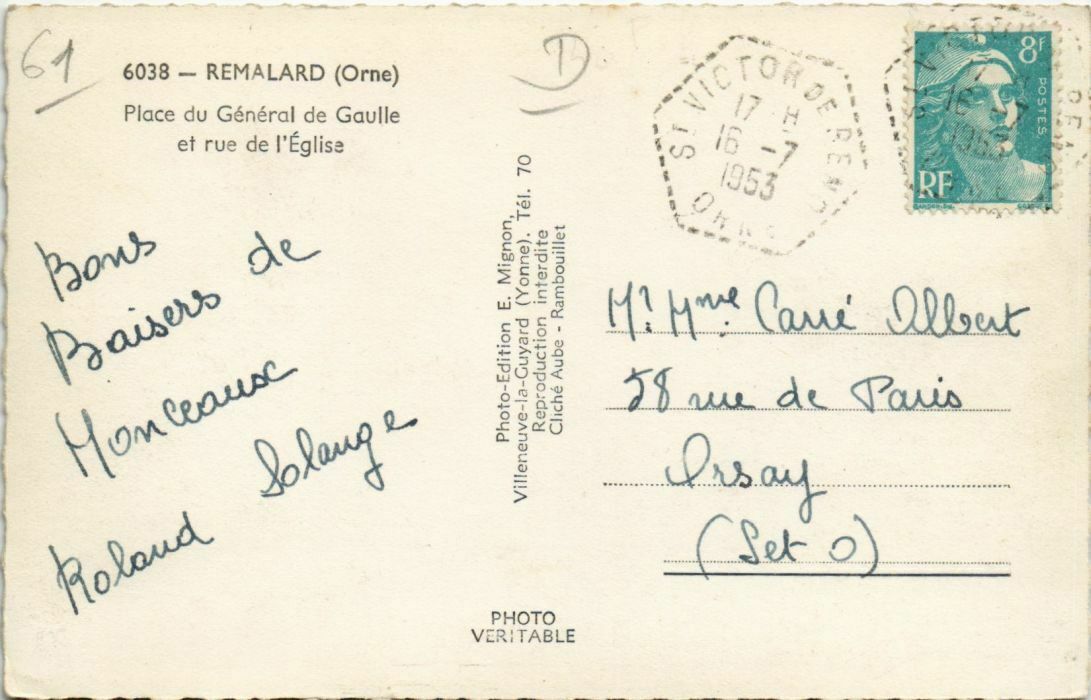 61
6038 — REMALARD (Orne)
Place du Général de Gaulle
et rue de l'Église
D
ST VICTOR DE RENO
17 H
16 -7
1953
ORNE
8f
POSTES
RF
16 -7
1953
Bons
Baisers de
Monceaux
Solange
Roland
Photo-Edition E. Mignon,
Villeneuve-la-Guyard (Yonne). Tél. 70
Reproduction interdite
Cliché Aube - Rambouillet
Mr. Mme. Carré Albert
58 rue de Paris
Orsay
(Set O)
PHOTO
VERITABLE